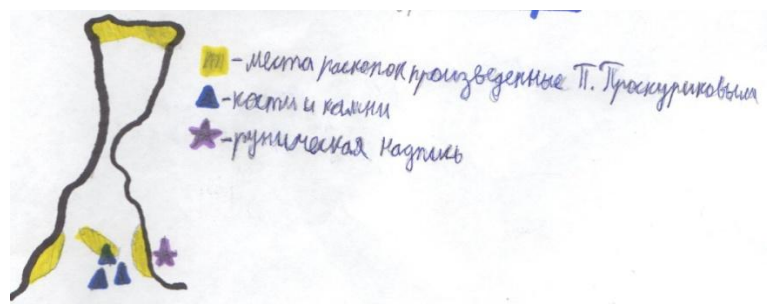 - места раскопок произведенные П. Проскуряковым
- кости и камни
- руническая надпись